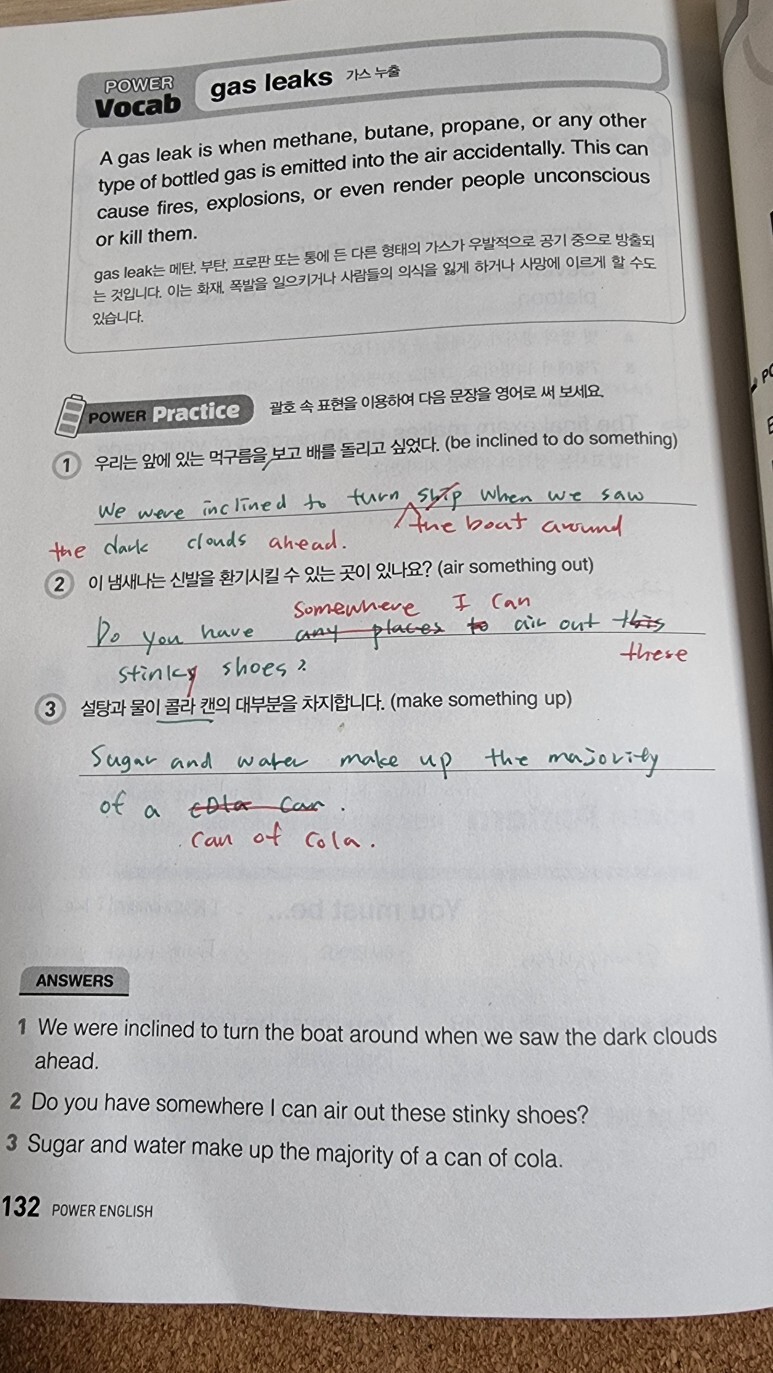 POWER Vocab gas leaks 가스 누출
A gas leak is when methane, butane, propane, or any other
type of bottled gas is emitted into the air accidentally. This can
cause fires, explosions, or even render people unconscious
or kill them.
gas leak는 메탄, 부탄, 프로판 또는 통에 든 다른 형태의 가스가 우발적으로 공기 중으로 방출되
는 것입니다. 이는 화재, 폭발을 일으키거나 사람들의 의식을 잃게 하거나 사망에 이르게 할 수도
있습니다.
POWER Practice 괄호 속 표현을 이용하여 다음 문장을 영어로 써 보세요.
1 우리는 앞에 있는 먹구름을 보고 배를 돌리고 싶었다. (be inclined to do something)
We were inclined to turn ship when we saw
the boat around
the dark clouds ahead.
2 이 냄새나는 신발을 환기시킬 수 있는 곳이 있나요? (air something out)
somewhere I can
Do you have any places to air out this
these
stinky shoes?
3 설탕과 물이 콜라 캔의 대부분을 차지합니다. (make something up)
Sugar and water make up the majority
of a cola can.
can of cola.
You must be...
ANSWERS
1 We were inclined to turn the boat around when we saw the dark clouds
ahead.
2 Do you have somewhere I can air out these stinky shoes?
3 Sugar and water make up the majority of a can of cola.
132 POWER ENGLISH